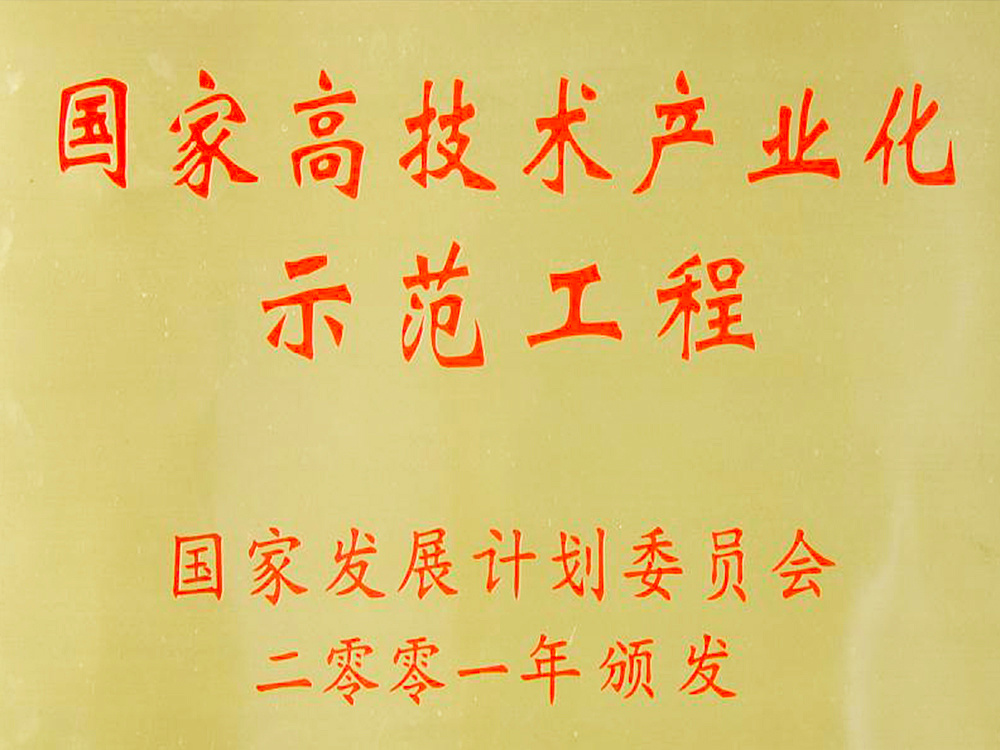 国家高技术产业化
示范工程
国家发展计划委员会
二零零一年颁发